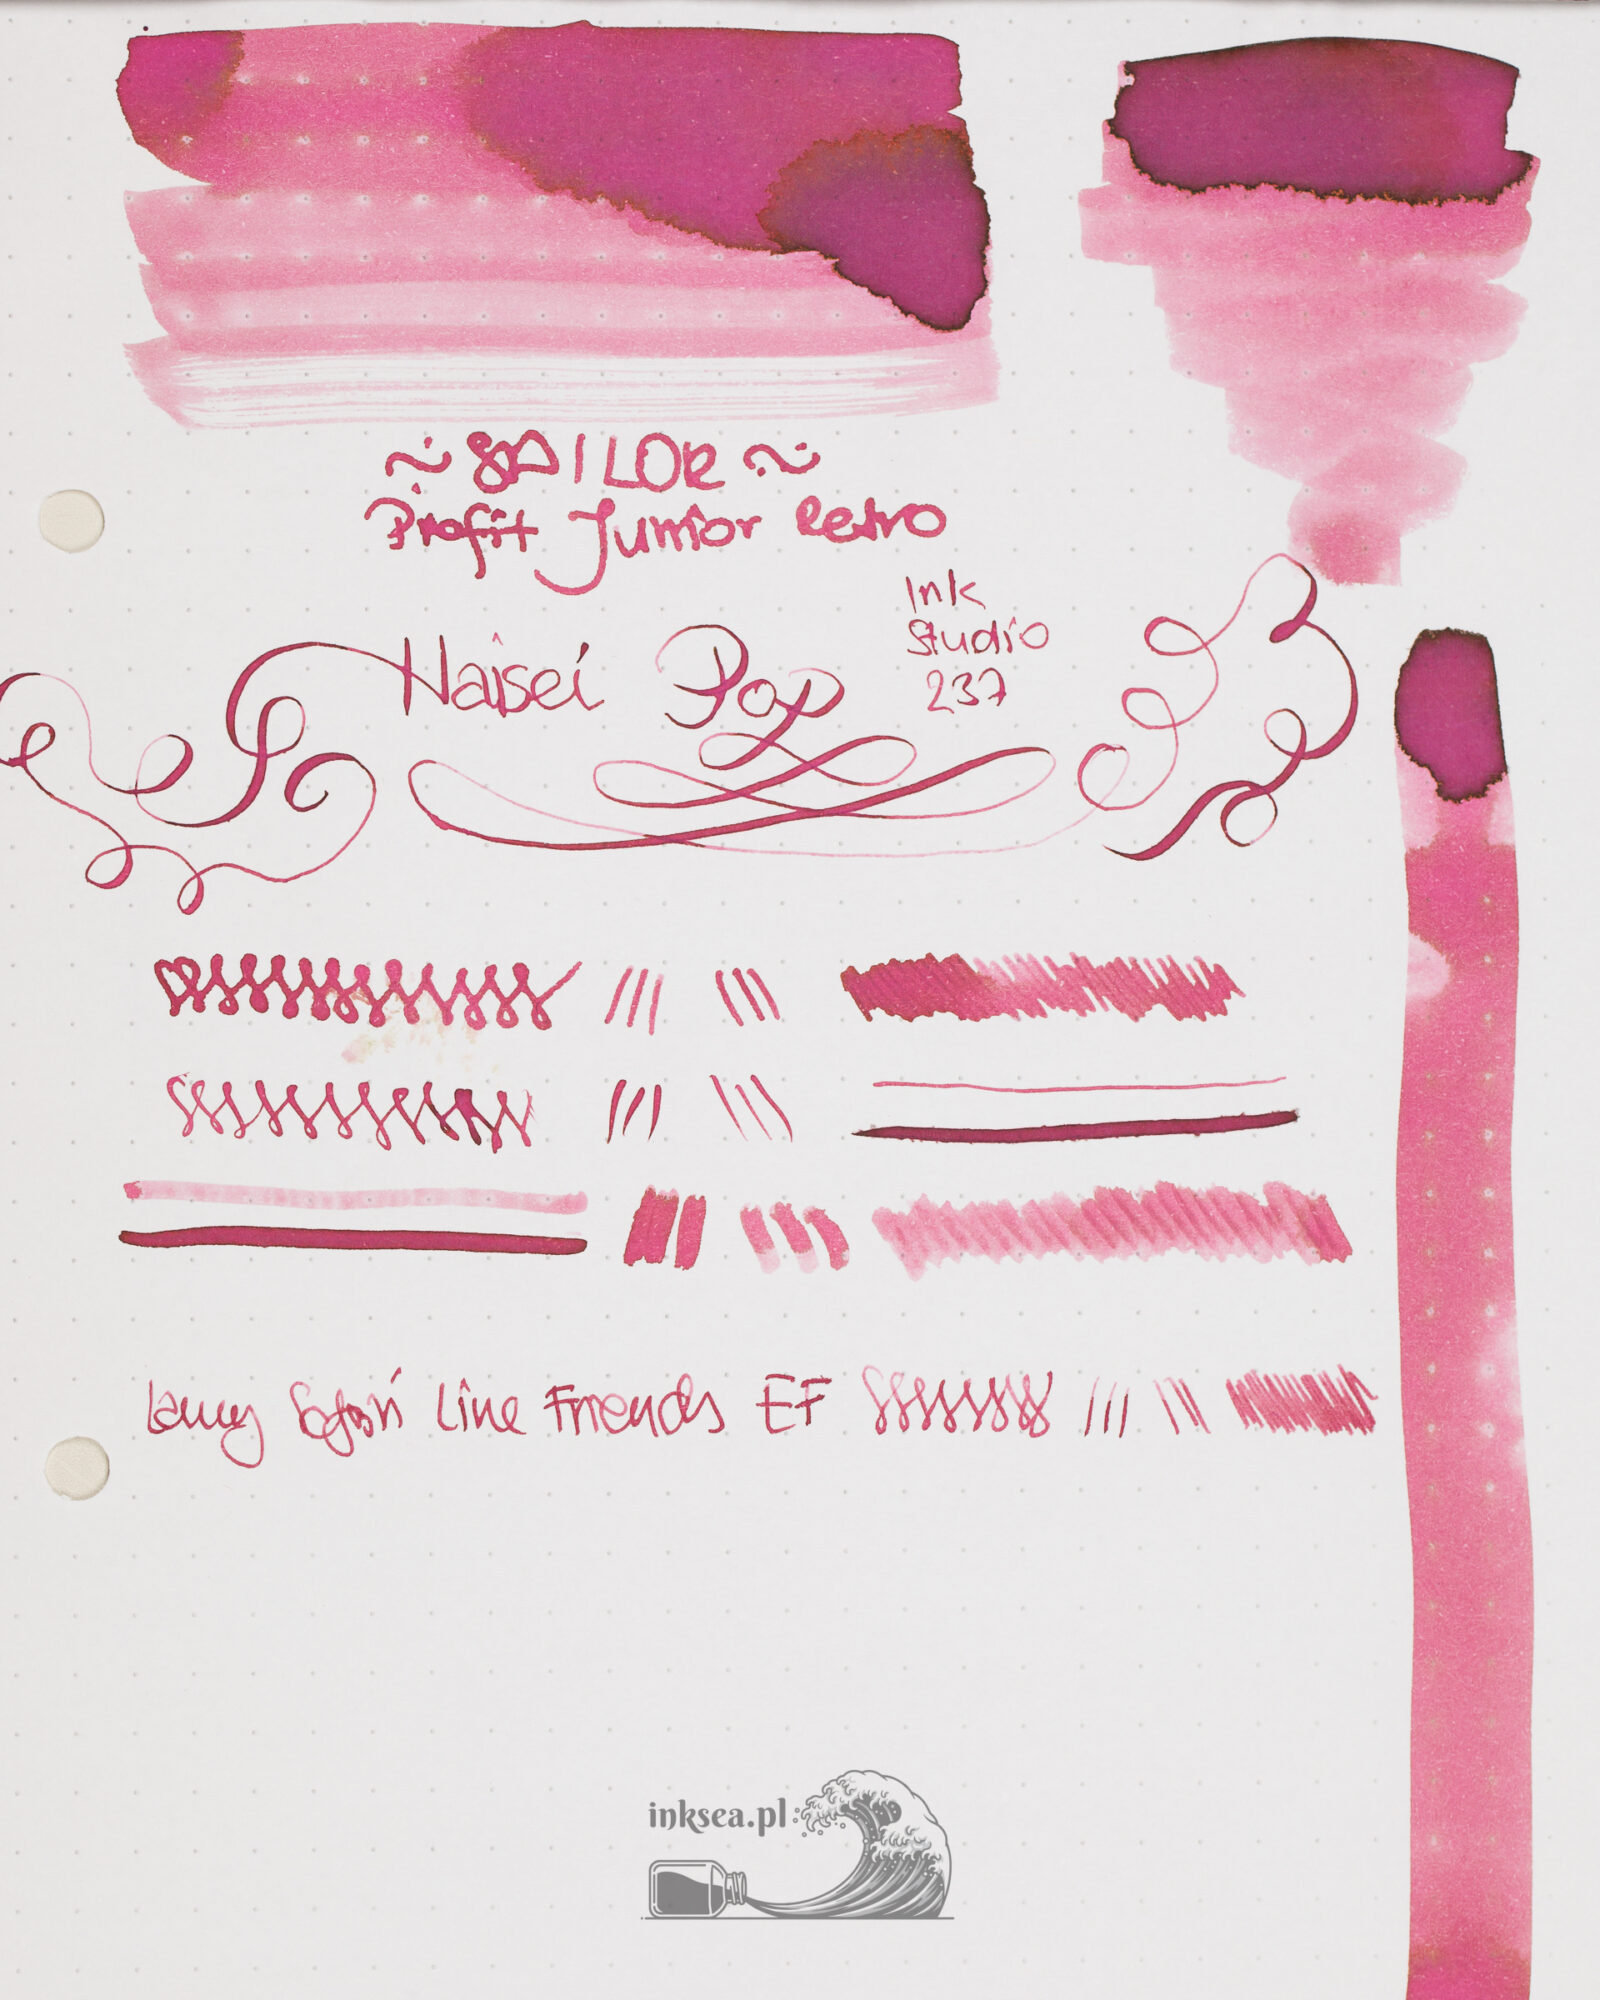 ~ SAILOR ~
Profit Junior Retro
Haisei Pop
Ink
Studio
237
Lamy Safari Line Friends EF
inksea.pl